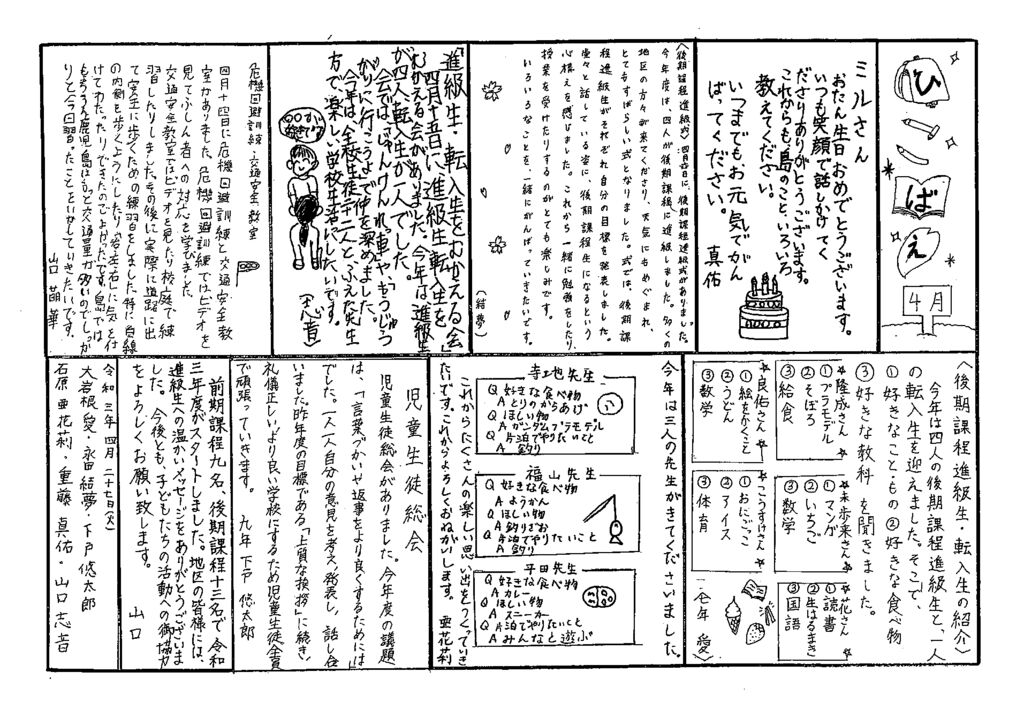 ひばえ
4月
ミルさん
おたん生日おめでとうございます。
いつも笑顔で話しかけてく
ださりありがとうございます。
これからも、島のこと、いろいろ
教えてください。
いつまでも、お元気でがん
ばってください。
真佑
〈後期課程進級式〉四月六日に、後期課程進級式がありました。
今年度は、四人が後期課程に進級しました。多くの
地区の方々が来てくださり、天気にもめぐまれ、
とてもすばらしい式となりました。式では、後期課
程進級生がそれぞれ自分の目標を発表しました。
堂々と話している姿に、後期課程生になるという
心構えを感じました。これから一緒に勉強をしたり、
授業を受けたりするのがとても楽しみです。
いろいろなことを、一緒にがんばっていきたいです。
(結夢)
進級生・転入生をむかえる会
四月十五日に、進級生、転入生を
むかえる会がありました。今年は進級生
が四人、転入生が一人でした。
会では、「じゃんけん列車」や、「もうじゅう
がりに行こうよ」で仲を深めました。
今年は、全校生徒二十二人と、ふえた先生
方で、楽しい学校生活にしたいです。
(志音)
危機回避訓練・交通安全教室
四月十四日に危機回避訓練と交通安全教
室がありました。危機回避訓練ではビデオを
見てふしん者への対応を学びました。
交通安全教室ではビデオを見たり校庭で練
習したりしました。その後に実際に道路に出
て安全に歩くための練習をしました。特に白線
の内側を歩くようにしたり「右左右」に気を付
けてわたったりできたのでよかったです。島では
もちろん鹿児島はもっと交通量が多いのでしっか
りと今回習ったことをいかしていきたいです。
山口 萌華
〈後期課程進級生・転入生の紹介〉
今年は四人の後期課程進級生と、一人
の転入生を迎えました。そこで、
①好きなこと・もの ②好きな食べ物
③好きな教科 を聞きました。
隆成さん
①プラモデル
②そぼろ
③給食
良佑さん
①絵をかくこと
②うどん
③数学
未歩来さん
①マンガ
②いちご
③数学
こうすけさん
①おにごっこ
②アイス
③体育
花さん
①読書
②生はるまき
③国語
今年は三人の先生がきてくださいました。
寺地先生
Q 好きな食べ物
A とりのからあげ
Q ほしい物
A ガンダムプラモデル
Q 片泊でやりたいこと
A 釣り
福山先生
Q 好きな食べ物
A ようかん
Q ほしい物
A 釣りざお
Q 片泊でやりたいこと
A 釣り
平田先生
Q 好きな食べ物
A カレー
Q ほしい物
A スニーカー
Q 片泊でやりたいこと
A みんなと遊ぶ
これからたくさんの楽しい思い出をつくっていき
たいです。これからよろしくおねがいします。
亜花莉
児童生徒総会
児童生徒総会がありました。今年度の議題
は、「言葉づかいや返事をより良くするためには」
でした。一人一人自分の意見を考え発表し、話し合
いました。昨年度の目標である「上質な挨拶」に続き、
礼儀正しいより良い学校にするため児童生徒全員
で頑張っていきます。
九年 下戸 悠太郎
前期課程九名、後期課程十三名で令和
三年度がスタートしました。地区の皆様には、
進級生への温かいメッセージをありがとうございま
した。今後とも、子どもたちの活動への御協力
をよろしくお願い致します。
山口
令和三年四月二十七日(火)
大岩根 愛・永田 結夢・下戸 悠太郎
石原 亜花莉・重藤 真佑・山口 志音